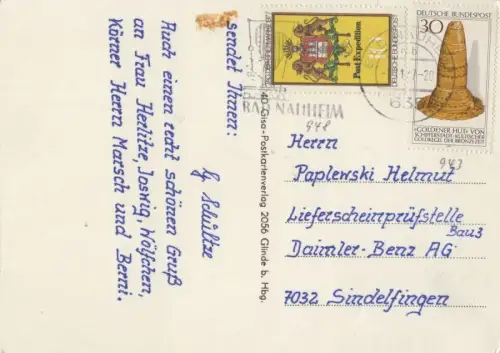 sendet Ihnen:
G. Schültze
Auch einen recht schönen Gruß
an Frau Herlitze, Joswig, Wölfchen,
Körner Herrn Marsch und Berni.
40 Gisa-Postkartenverlag 2056 Glinde b. Hbg.
BAD NAUHEIM
63
Post-Expedition
DEUTSCHE BUNDESPOST
DEUTSCHE BUNDESPOST
30
»GOLDENER HUT« VON
SCHIFFERSTADT-KULTISCHER
GOLDKEGEL DER BRONZEZEIT
948
943
Herrn
Paplewski Helmut
Lieferscheinprüfstelle
Bau 3
Daimler-Benz AG
7032 Sindelfingen